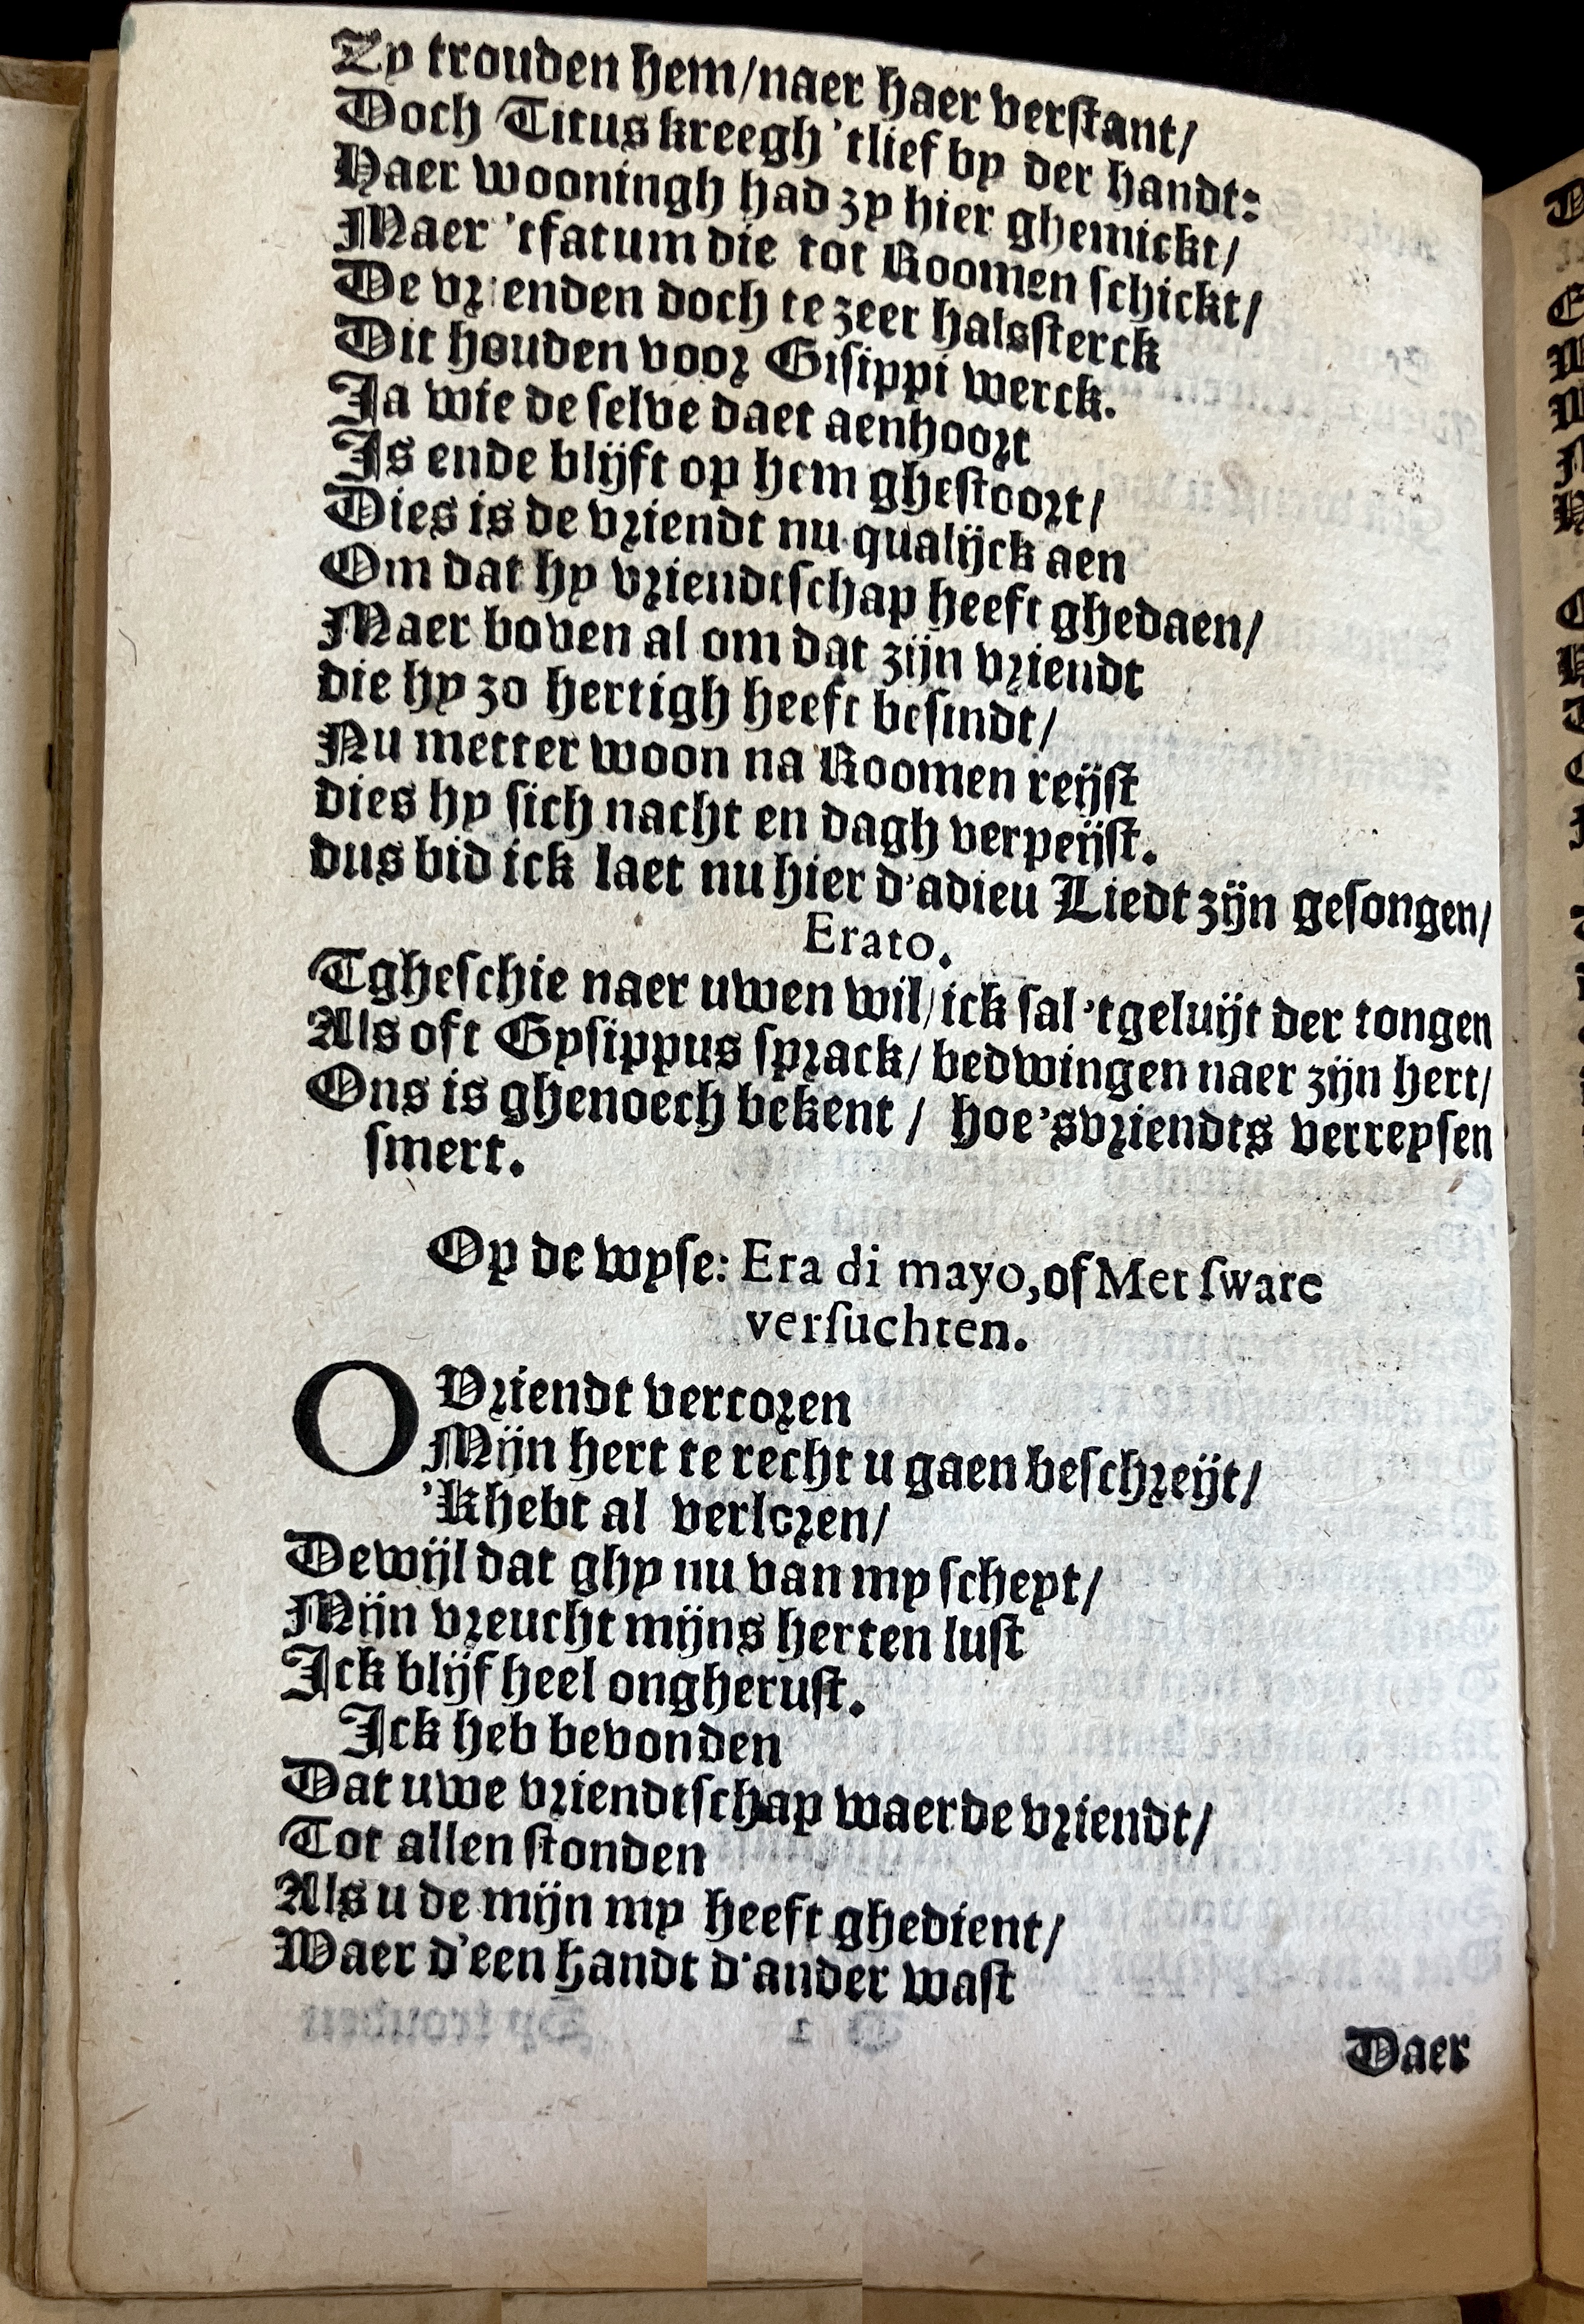 Zy trouden hem/naer haer verstant/
Doch Titus kreegh 'tlief by der handt:
Haer wooningh had zy hier ghemickt/
Maer 'tfatum die tot Roomen schickt/
De vrienden doch te zeer halssterck
Dit houden voor Gisippi werck.
Ja wie de selve daet aenhoort
Is ende blijft op hem ghestoort/
Dies is de vriendt nu qualijck aen
Om dat hy vriendtschap heeft ghedaen/
Maer boven al om dat zijn vriendt
die hy zo hertigh heeft besindt/
Nu metter woon na Roomen reijst
dies hy sich nacht en dagh verpeijst.
dus bid ick laet nu hier d'adieu Liedt zijn gesongen/
Erato.
Tgheschie naer uwen wil/ick sal 'tgeluijt der tongen
Als oft Gysippus sprack/ bedwingen naer zijn hert/
Ons is ghenoech bekent / hoe'svriendts verreysen
smert.
Op de wyse: Era di mayo, of Met sware
versuchten.
O Vriendt vercoren
Mijn hert te recht u gaen beschreijt/
'k hebt al verloren/
Dewijl dat ghy nu van my scheyt/
Mijn vreucht mijns herten lust
Ick blijf heel ongherust.
Ick heb bevonden
Dat uwe vriendtschap waerde vriendt/
Tot allen stonden
Als u de mijn my heeft ghedient/
Waer d'een handt d'ander wast
Daer